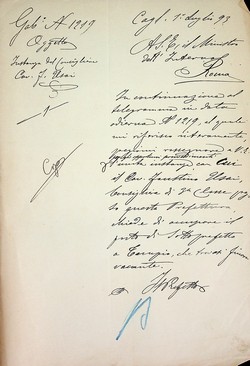 Gab. N 1219
Oggetto
Istanza del Consigliere
Cav. F. Usai
Cagl. 1° Luglio 93
A S. E. il Ministro
dell' Interno
Roma
In continuazione al
telegramma in data
odierna N° 1219, al quale
mi riferisco interamente
pregiomi rassegnare a V. E.
istanza
del Cav. Faustino Usai,
Consigliere di 2a Classe
questa Prefettura,
chiede di occupare il
posto di Sottoprefetto
a Tempio, che trovasi
vacante.
Il Prefetto